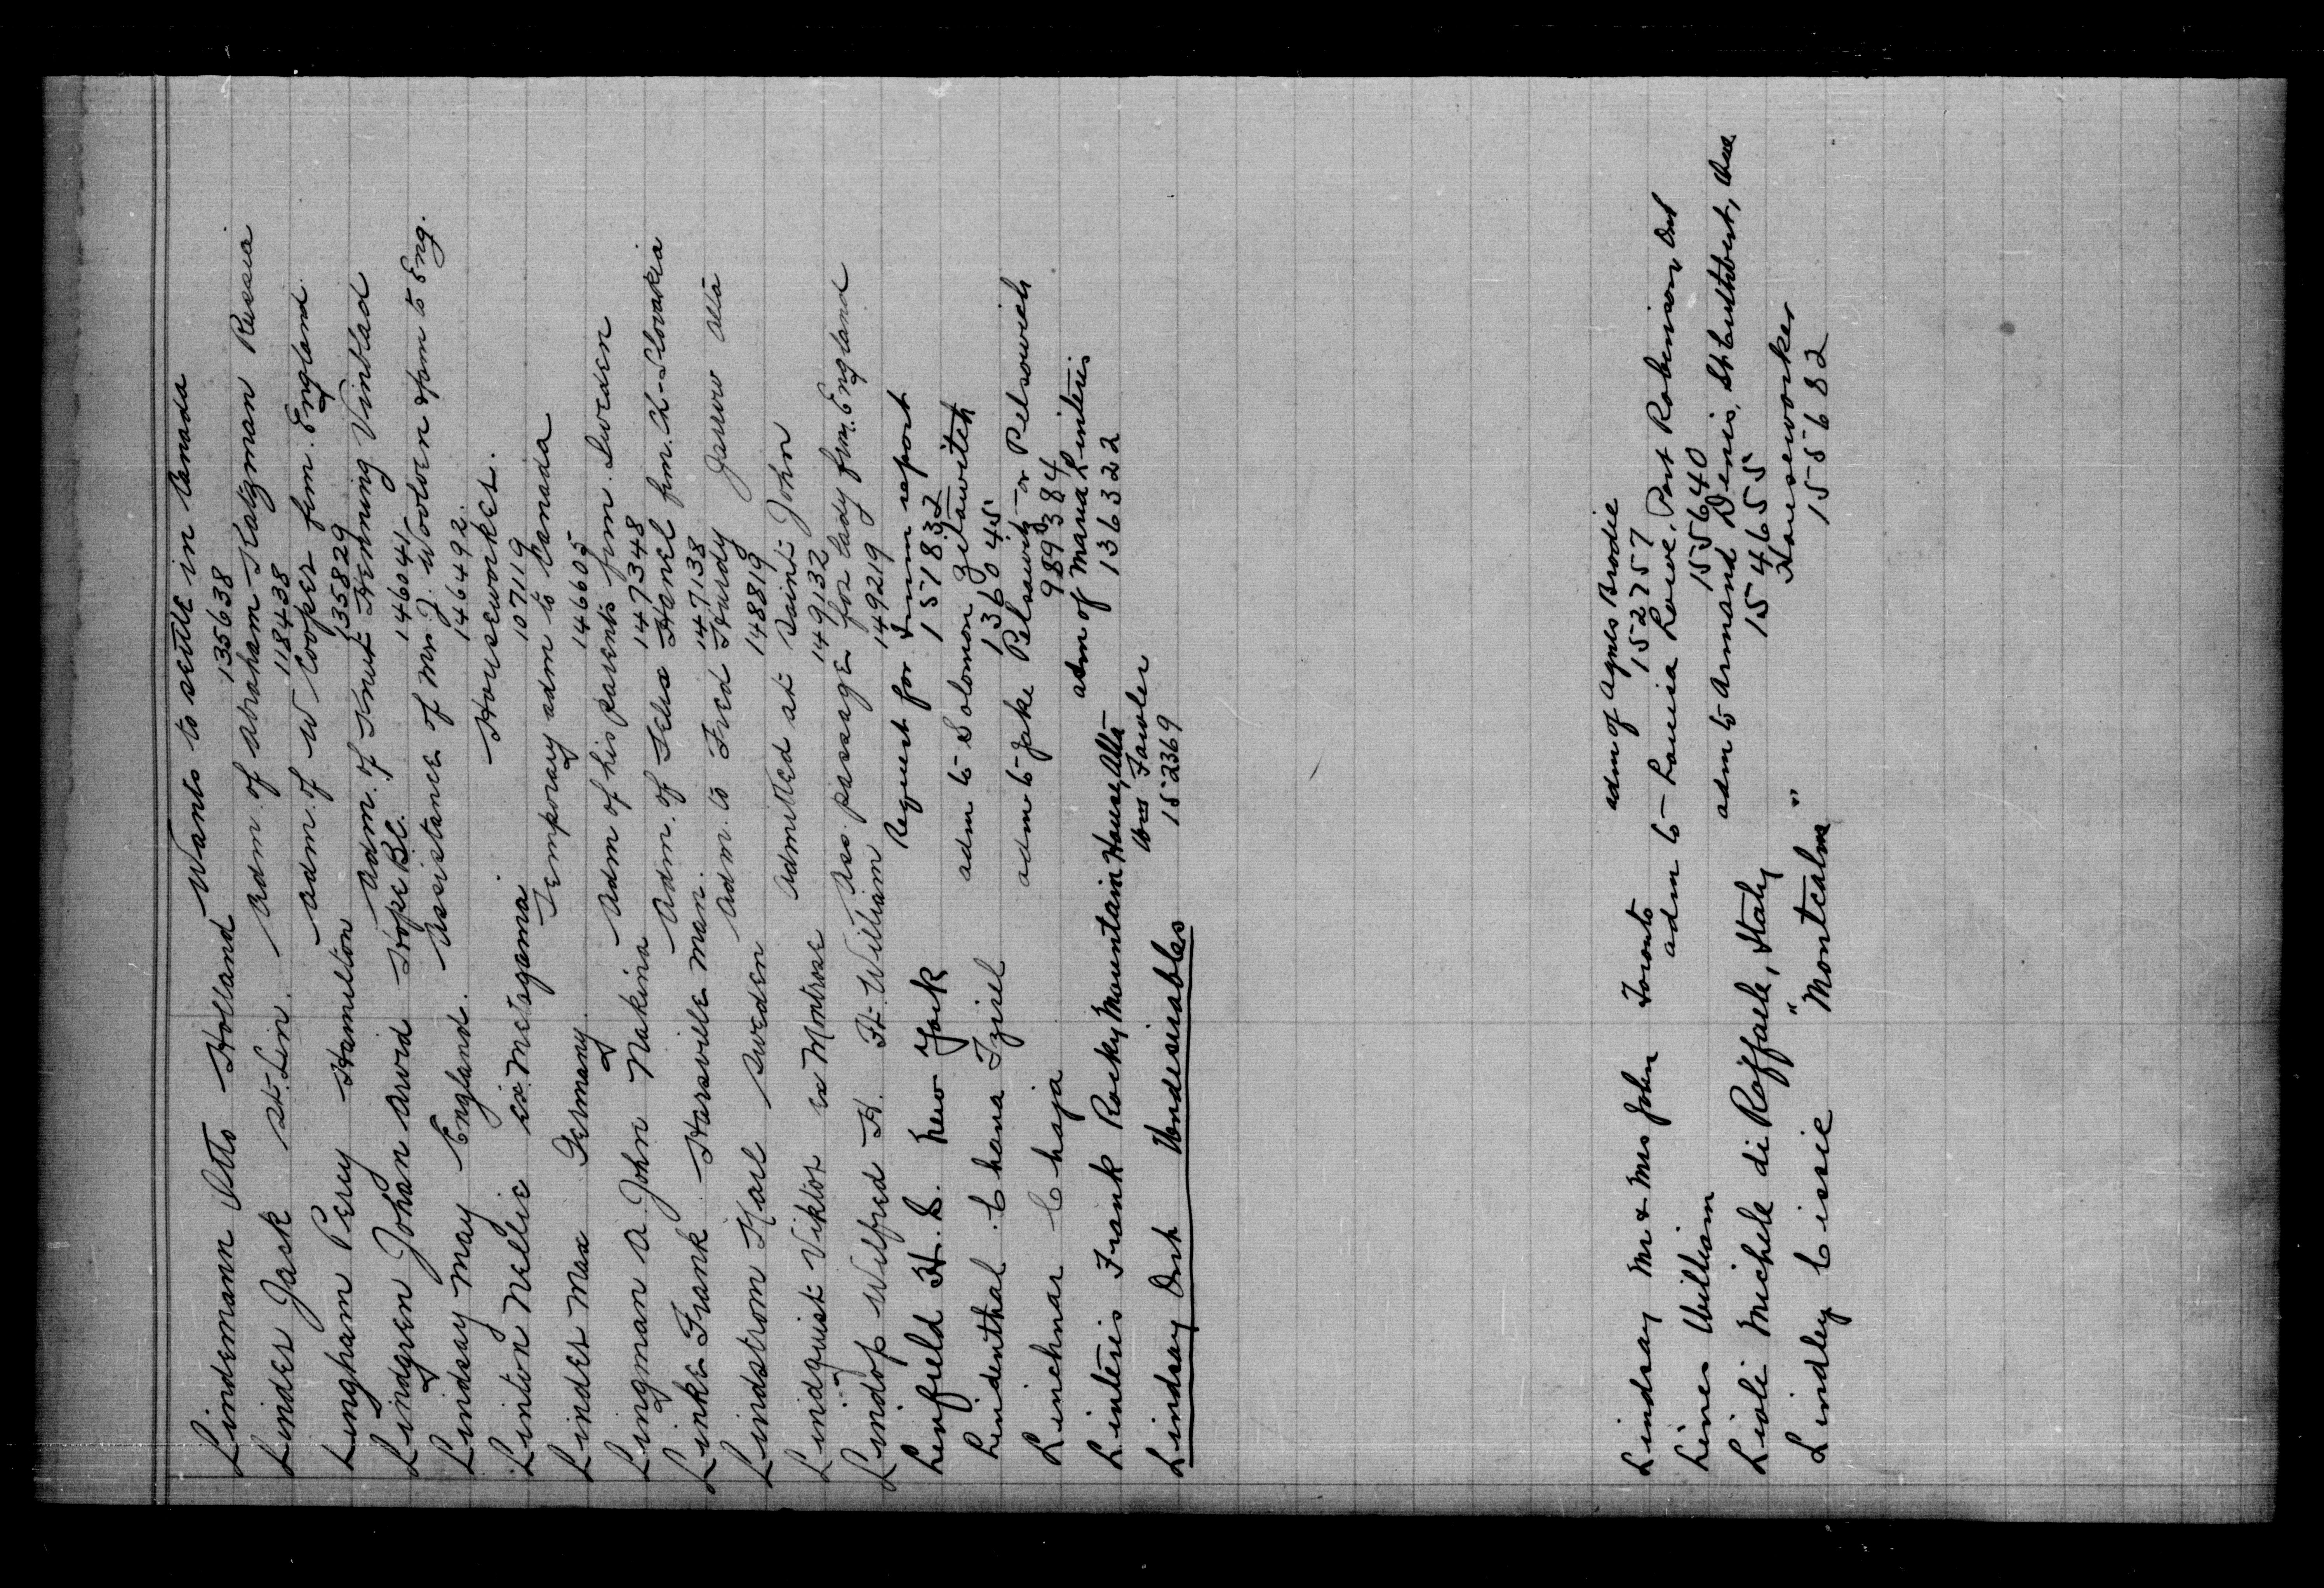 Lindemann Otto Holland Wants to settle in Canada
135638
Linder Jack St. Lin. Adm. of Abraham Katzman Russia
118438
Lingham Perry Hamilton Adm. of W Cooper from. England.
135829
Lindgren Johan Arvid Hope B.C. Adm. of Knut Henning Vinblad
146041
Lindsay May England. Assistance of Mr. J. Wooloen from to Eng.
146492.
Linton Nellie ex. Metagama. Houseworker.
107119
Linder Max Germany. Temporary adm to Canada
146605
Lingman A John Nakina Adm of his parents from. Sweden
147348
Linke Frank Harsville Man. Adm. of Hanel frm. Ch-Slovakia
147138
Lindstrom Karl Sweden Adm. to Fred Hurdy Jarrow Alta
148819
Lindquist Viktor ex Montrose Admitted at Saint John
149132
Lindop Wilfred H. Ft. William Ass. passage for lady frm. England
149219
Linfield H. S. New York Request for Imm report
151832
Lindenthal Chana Izisel adm to Solomon Zelawitch
136045
Linchnar Chaja adm to Jake Pelsawich or Pelsowich
989384
Linteris Frank Rocky Mountain House, Alta adm of Maria Linteris
136322
Lindsay Ont Undesirables Wm Fowler
152369
Lindsay Mr & Mrs John Toronto adm of Agnes Brodie
152757
Lines William adm to Louia Lowe, Port Robinson Ont
155640
Lioli Michele di Raffaele, Italy adm to Armand Denis, St Cuthbert, Que
154655
Lindley Cissie "Montcalm" Houseworker
155682